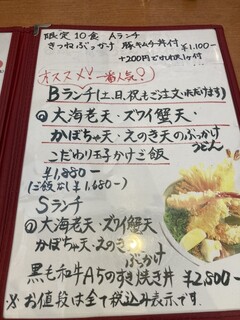 限定10食 Aランチ
きつねぶっかけ 豚キムチ丼付 ¥1,100-
+200円で
オススメ! 一番人気!
Bランチ(土、日、祝もご注文いただけます)
大海老天・ズワイ蟹天・
かぼちゃ天・えのき天のぶっかけ
うどん
こだわり玉子かけご飯
¥1,880-
(ご飯なし ¥1,650-)
Sランチ
大海老天・ズワイ蟹天
かぼちゃ天・えのき
ぶっかけ
黒毛和牛A5のすき焼き丼 ¥2,800-
※お値段は全て税込み表示です。